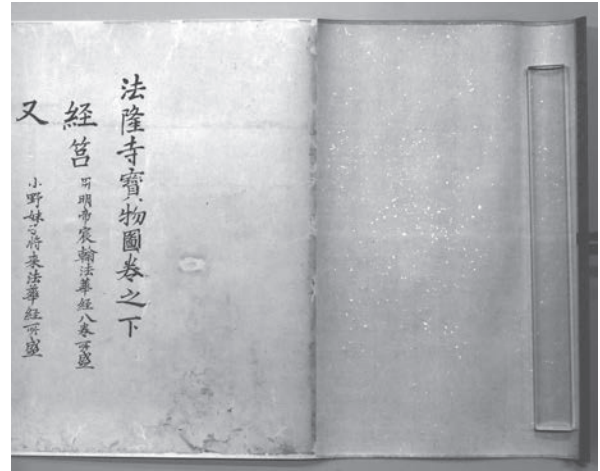 法隆寺寳物圖卷之下
経筥 明帝宸翰法華経八巻所盛
又 小野妹子将来法華経所盛